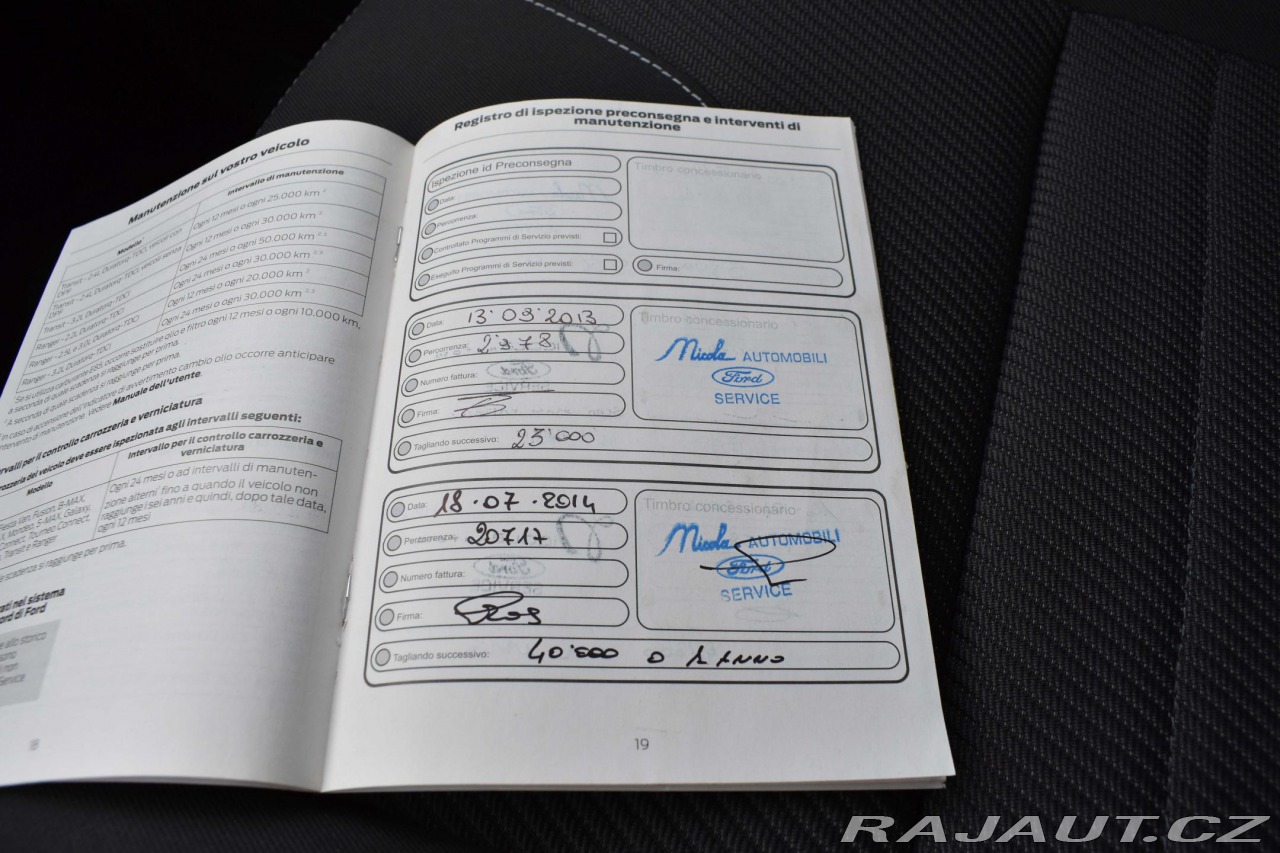 Manutenzione sul vostro veicolo
Modello
Intervallo di manutenzione
Transit - 2.4L Duratorq-TDCi, veicoli con DPF
Ogni 12 mesi o ogni 25.000 km
Transit - 2.4L Duratorq-TDCi, veicoli senza DPF
Ogni 12 mesi o ogni 30.000 km
Transit - 3.2L Duratorq-TDCi
Ogni 24 mesi o ogni 50.000 km
Ranger - 2.2L Duratorq-TDCi
Ogni 24 mesi o ogni 30.000 km
Ranger - 2.5L e 3.0L Duratorq-TDCi
Ogni 12 mesi o ogni 20.000 km
Ranger - 3.2L Duratorq-TDCi
Ogni 24 mesi o ogni 30.000 km
Se si utilizza carburante E85 occorre sostituire olio e filtro ogni 12 mesi o ogni 10.000 km,
a seconda di quale scadenza si raggiunge per prima.
A seconda di quale scadenza si raggiunge per prima.
In caso di accensione dell'indicatore di avvertimento cambio olio occorre anticipare
intervento di manutenzione. Vedere Manuale dell'utente.
per il controllo carrozzeria e verniciatura
del veicolo deve essere ispezionata agli intervalli seguenti:
Modello
Intervallo per il controllo carrozzeria e
verniciatura
Fiesta Van, Fusion, B-MAX,
Mondeo, S-MAX, Galaxy,
Connect, Tourneo Connect,
Transit e Ranger
Ogni 24 mesi o ad intervalli di manuten-
zione alterni fino a quando il veicolo non
raggiunge i sei anni e quindi, dopo tale data,
ogni 12 mesi
scadenza si raggiunge per prima.
nel sistema
di Ford
allo storico
sono
non
Service
18
Registro di ispezione preconsegna e interventi di
manutenzione
Ispezione id Preconsegna
Timbro concessionario
Data:
Percorrenza:
Controllato Programmi di Servizio previsti:
Eseguito Programmi di Servizio previsti:
Firma:
Data: 13·09·2013
Timbro concessionario
Percorrenza: 2978
Nicola AUTOMOBILI
Ford
SERVICE
Numero fattura:
Firma:
Tagliando successivo: 23'000
Data: 18.07.2014
Timbro concessionario
Percorrenza: 20717
Nicola AUTOMOBILI
Ford
SERVICE
Numero fattura:
Firma:
Tagliando successivo: 40'000 O 1 ANNO
19
RAJAUT.CZ